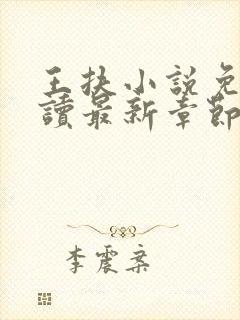 王扶小說免
讀最新章節
李震案